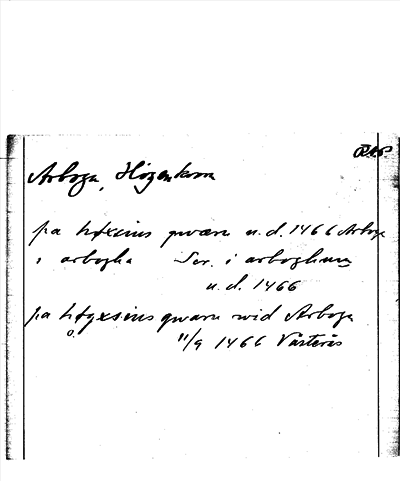 RAP.
Arboga, Högenkvarn
pa høxcius qwærn u.d. 1466 Arboga
i arbogha Scr. i arboghum
u.d. 1466
pa høgxsius qwarn wid Arboga
11/9 1466 Västerås